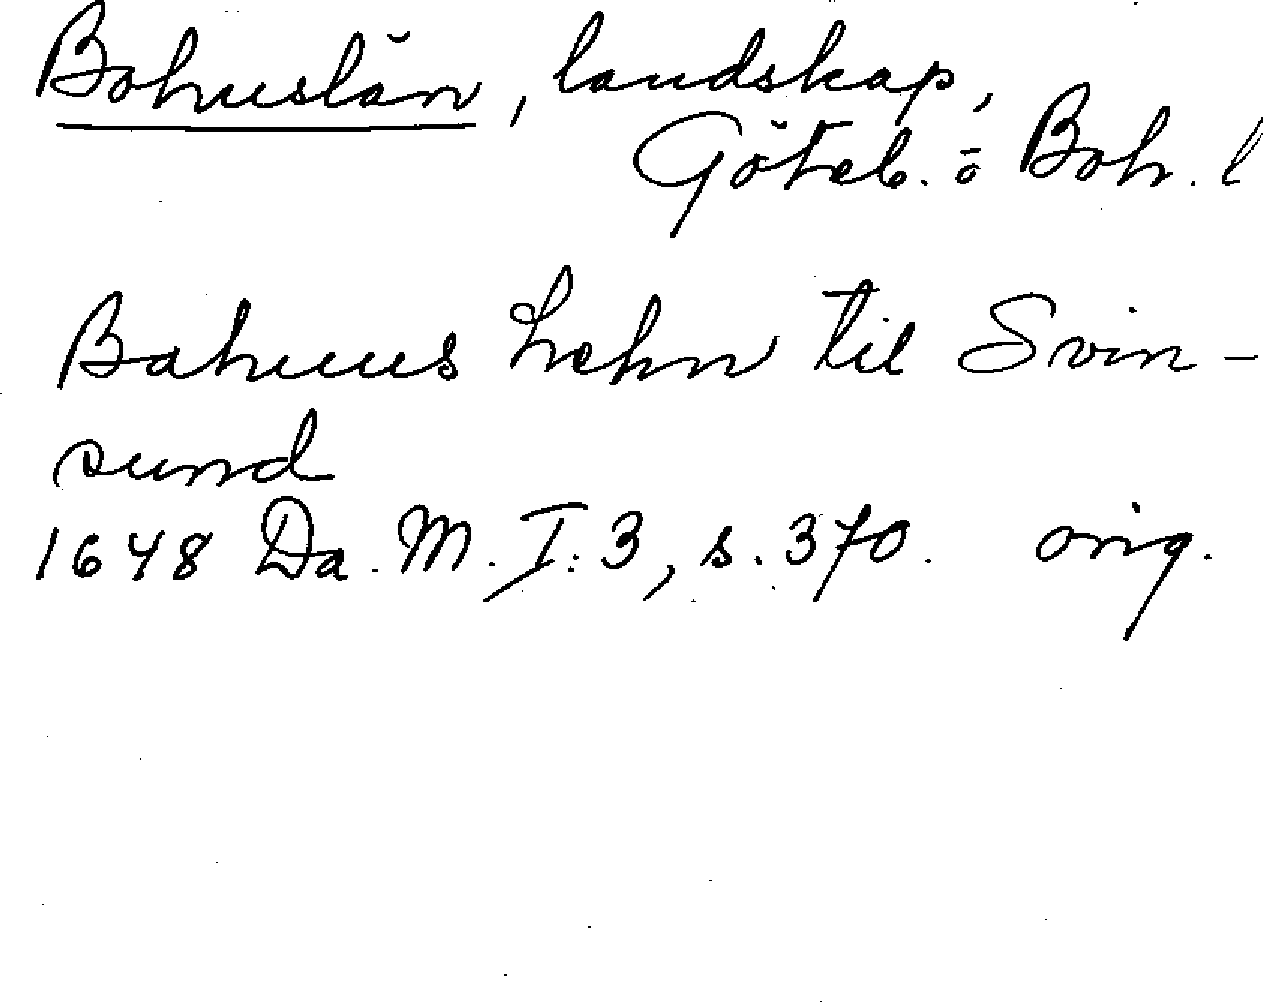 Bohuslän, landskap,
Göteb. o Boh. l
Bahuus Lehn til Svin-
sund
1648 Da. M. I:3, s. 370. orig.